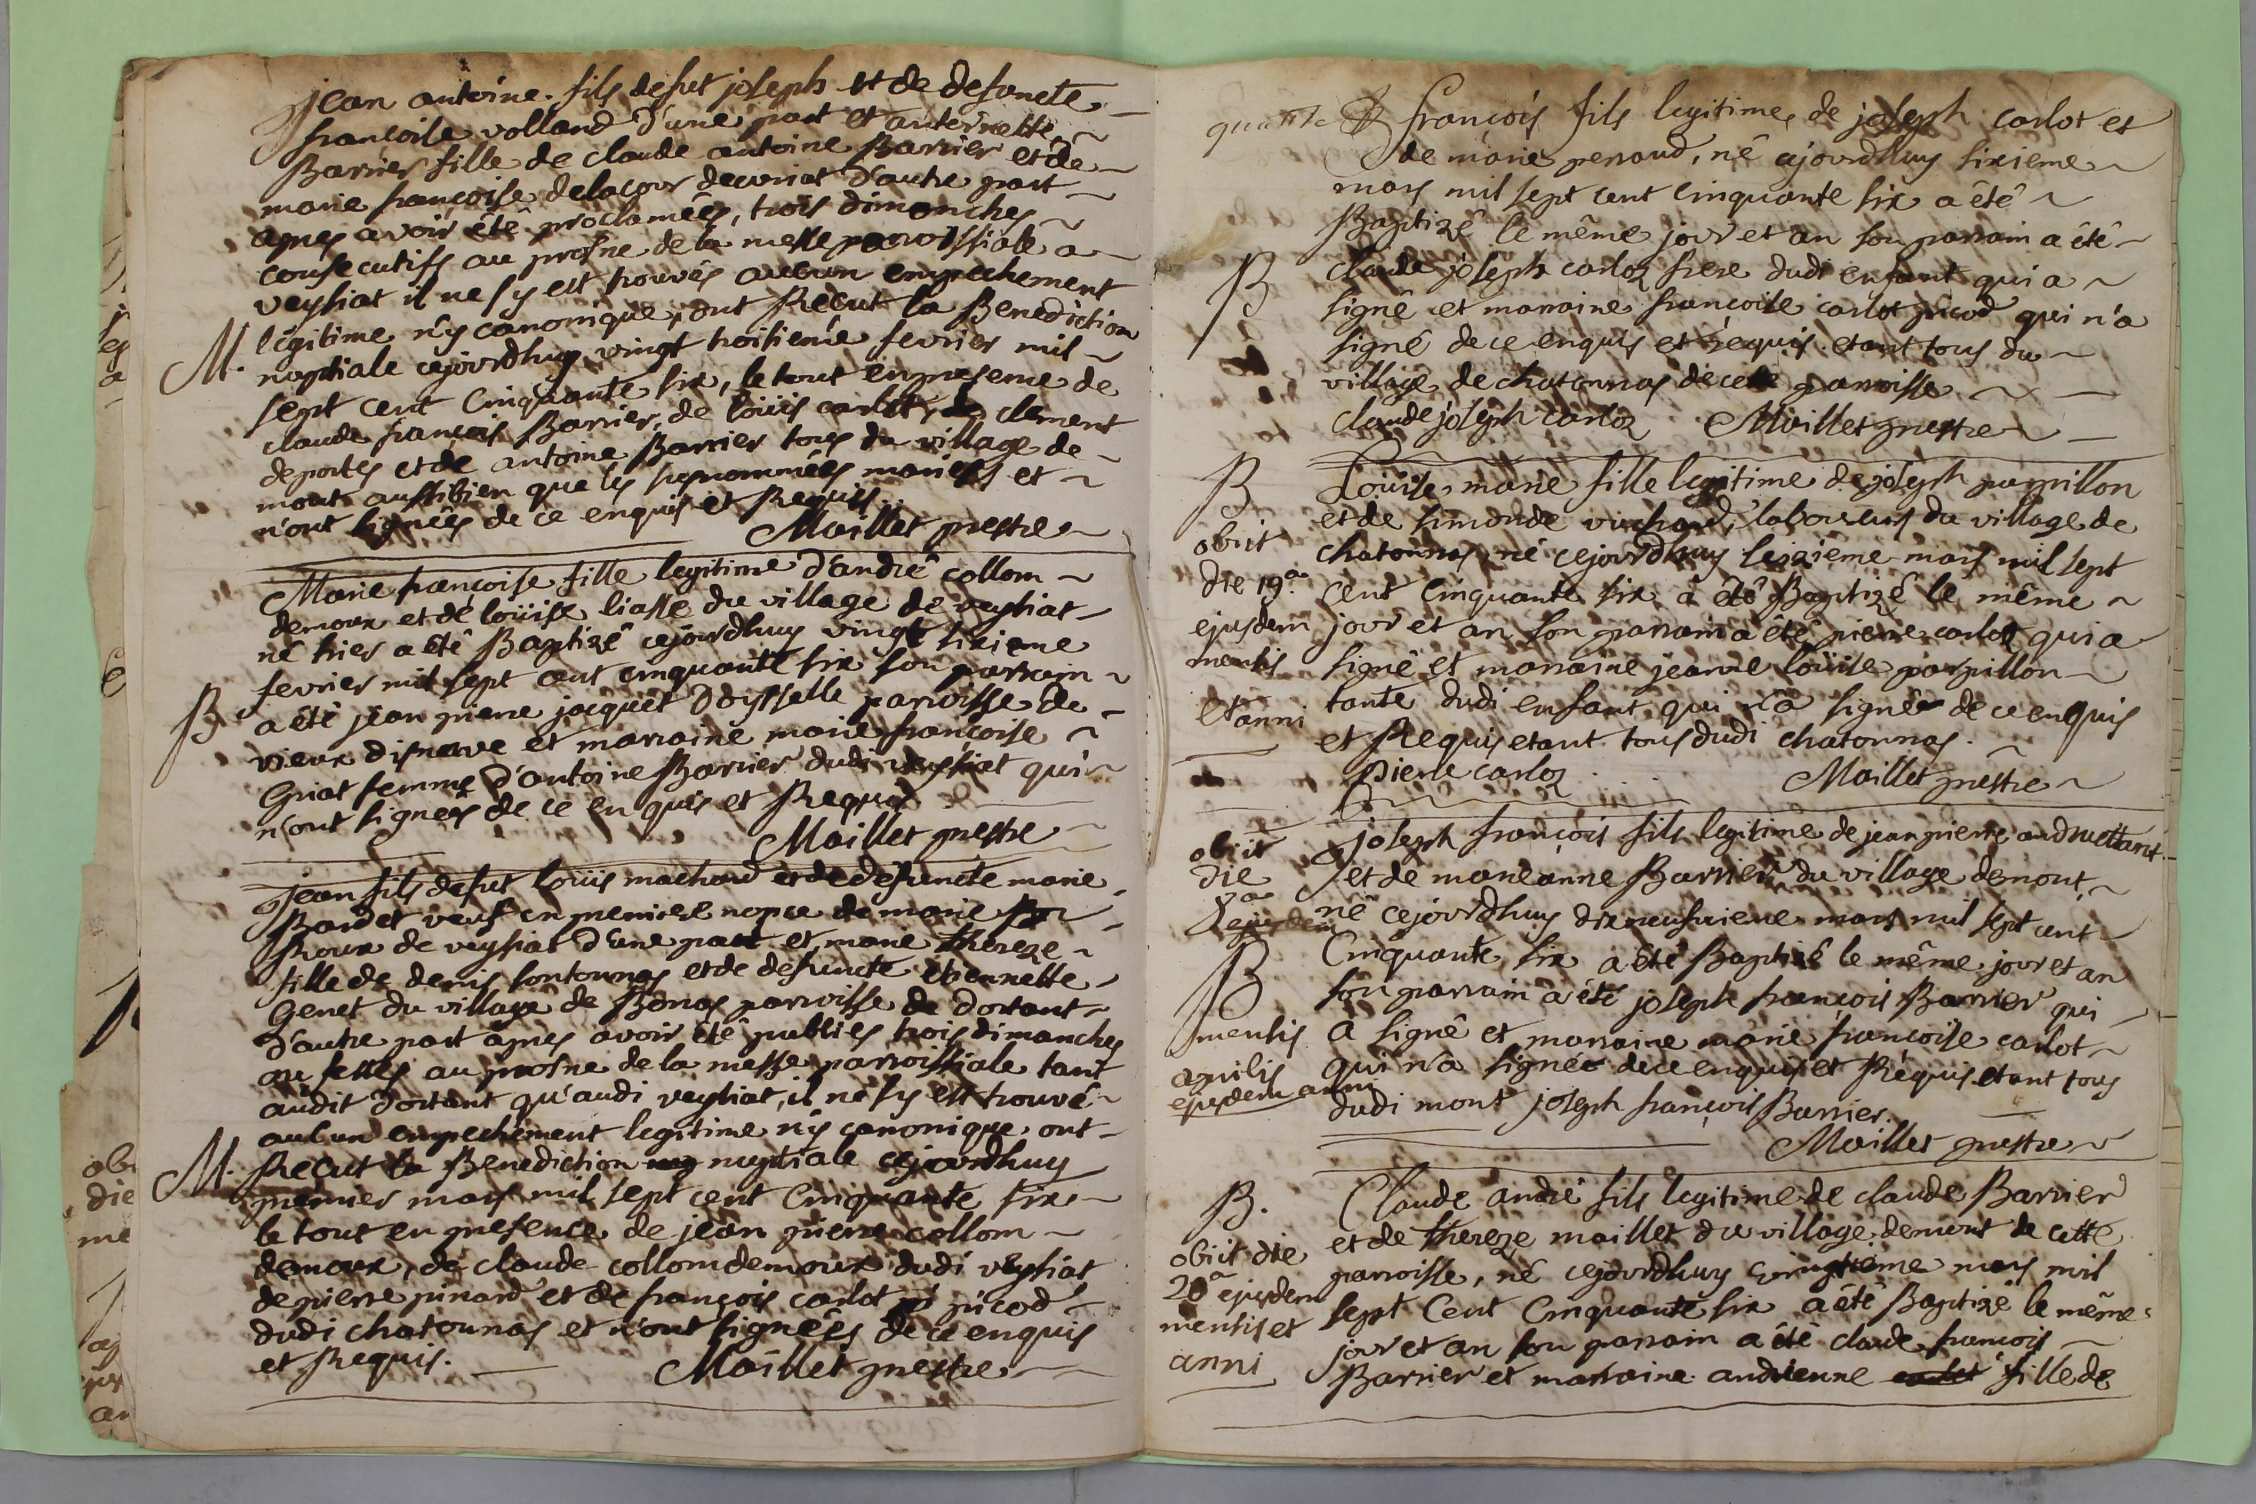 jean antoine fils defut joseph et de defuncte
francoise volland d'une part et anternette
Barrier fille de claude antoine Barrier et de
marie francoise delacour decuriat d'autre part
apres avoir été proclamées, trois dimanches
consecutifs au prosne de la messe parroissiale a
veysiat il ne sy est trouvés aucun empechement
M. légitime n'y canonique, ont Recut la Benediction
nuptiale cejourdhuy vingt troisieme fevrier mil
sept cent Cinquante six, le tout en presence de
claude françois Barrier, de loüis carlot, de clement
deportes et de antoine Barrier tous du village de
mont aussibien que les susnommées mariées et
n'ont signées de ce enquis et Requis.
Maillet prestre
Marie francoise fille legitime d'andré collom
demoux et de loüise liasse du village de veysiat
né hier a été Baptizé cejourdhuy vingt sixieme
fevrier mil sept cent cinquante six son parrain
B. a été jean pierre jacquet d'oysselle parroisse de
vieux disnave et marraine marie francoise
Griat femme d'antoine Barrier dudi veysiat qui
n'ont signées de ce en quis et Requis
Maillet prestre
jean fils defut loüis machard et de defuncte marie
Bardet veuf en premiere nopce de marie
Roux de veysiat d'une part et marie thereze
fille de denis sontonnas et de defuncte etiennette
Genet du village de Bonas parroisse de dortant
d'autre part apres avoir été publies trois dimanches
ou festes au prosne de la messe parroissiale tant
audit dortant qu'audi veysiat, il ne sy est trouvé
aucun empechement legitime n'y canonique ont
M. Recut la Benediction nuptiale cejourdhuy
premier mars mil sept cent Cinquante six
le tout en presence de jean pierre collom
demoux, de claude collomdemoux dudi veysiat
de pierre pinard et de françois carlot picod
dudi chatonnas et n'ont signées de ce enquis
et Requis. Maillet prestre
françois fils legitime de joseph carlot et
de marie perraud, né cejourdhuy sixieme
mars mil sept cent cinquante six a été
Baptizé le même jour et an son parrain a été
B claude joseph carloz frere dudi enfant qui a
signé et marraine francoise carlot picod qui n'a
signé de ce enquis et requis etant tous du
village de chatonnas de cete parroisse
claude joseph carloz Maillet prestre
B Loüise marie fille legitime de joseph parpillon
et de simonde vuchard, laboureurs du village de
obiit chatonnas né cejourdhuy seizieme mars mil sept
die 19a cent Cinquante six a été Baptizé le même
ejusdem jour et an son parrain a été pierre carlot qui a
mensis signé et marraine jeanne loüise parpillon
et anni tante dudi enfant qui n'a signée de ce enquis
et Requis etant tous dudi chatonnas.
Pierre carloz Maillet prestre
obiit joseph françois fils legitime de jean pierre andruettant
die et de marie anne Barrier du village demont
né cejourdhuy dixneufvieme mars mil sept cent
B Cinquante six a été Baptizé le même jour et an
son parrain a été joseph françois Barrier qui
mensis a signé et marraine marie francoise carlot
aprilis qui n'a signée de ce enquis et Réquis etant tous
ejusdem anni dudi mont joseph françois Barrier.
Maillet prestre
B. Claude andré fils legitime de claude Barrier
obiit die et de thereze maillet du village demont de cette
20a ejusdem parroisse, né cejourdhuy vingtieme mars mil
mensis et sept Cent Cinquante six a été Baptizé le même
anni jour et an son parrain a été claude françois
Barrier et marraine andrienne carlot fille de